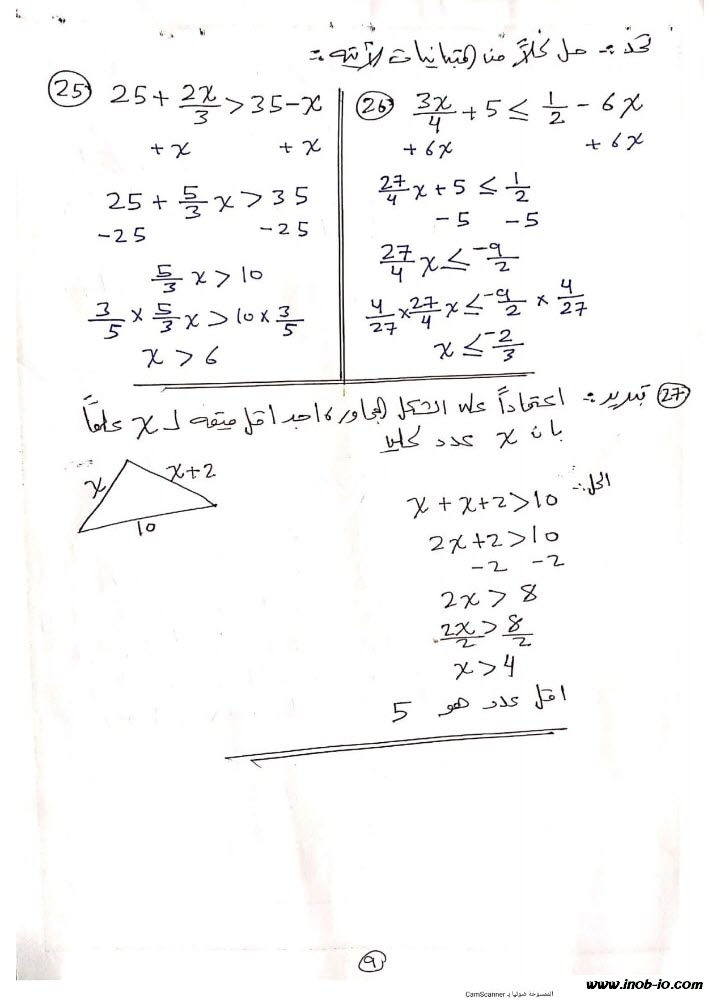 تحدٍّ : حل كلاً من المتباينات الآتية :
25 25 + 2x/3 > 35 - x
+ x + x
25 + 5/3 x > 35
-25 -25
5/3 x > 10
3/5 × 5/3 x > 10 × 3/5
x > 6
26 3x/4 + 5 ≤ 1/2 - 6x
+ 6x + 6x
27/4 x + 5 ≤ 1/2
- 5 - 5
27/4 x ≤ -9/2
4/27 × 27/4 x ≤ -9/2 × 4/27
x ≤ -2/3
27 تبرير : اعتماداً على الشكل المجاور، اجد اقل قيمة لـ x علماً
بأن x عدد كلي
x x+2
10
الحل :
x + x + 2 > 10
2x + 2 > 10
- 2 - 2
2x > 8
2x/2 > 8/2
x > 4
اقل عدد هو 5
9
الممسوحة ضوئيا بـ CamScanner
www.inob-jo.com